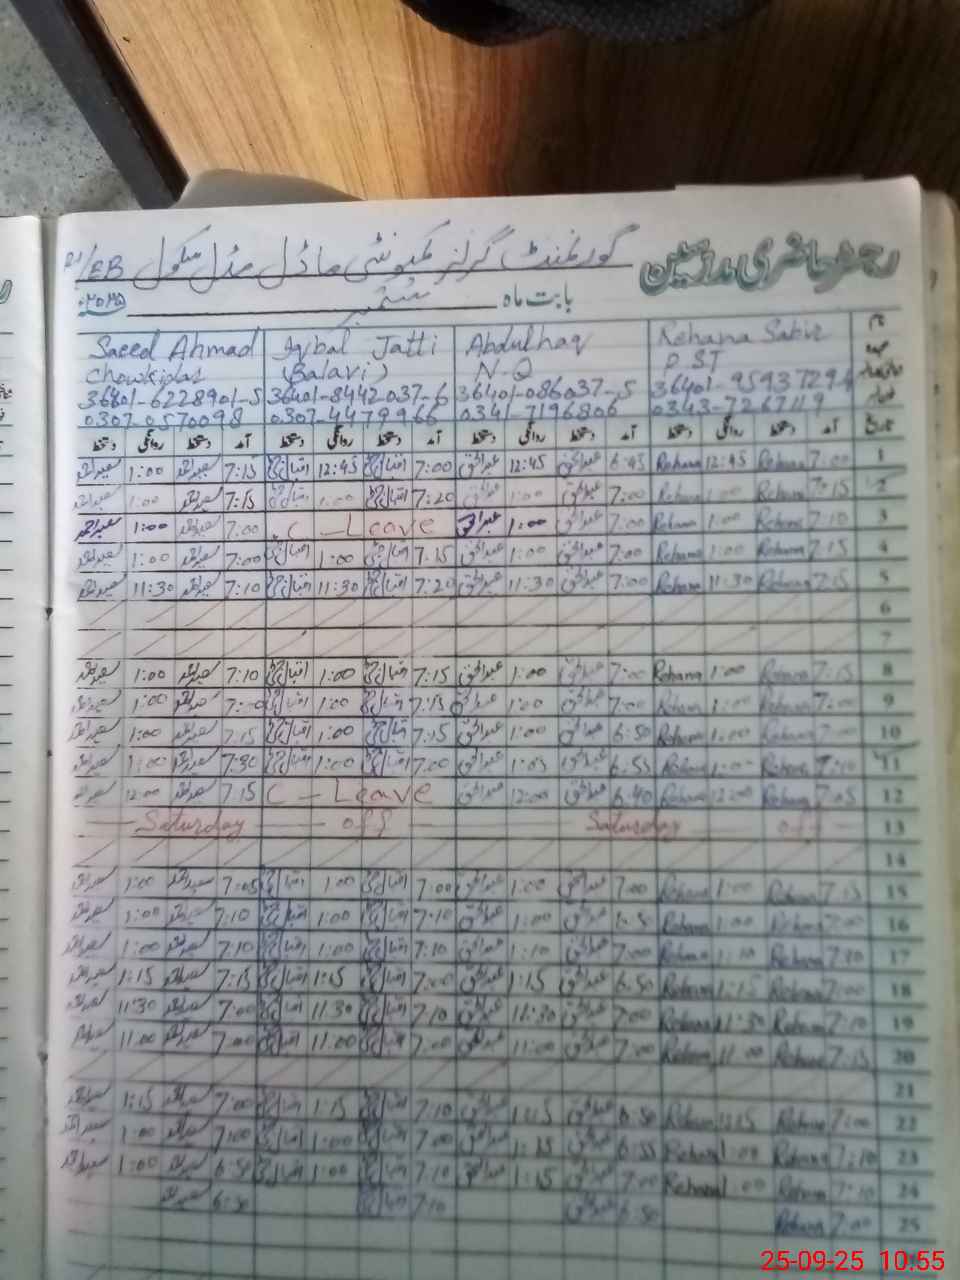 رجسٹر حاضری مدرسین گورنمنٹ گرلز کمیونٹی ماڈل مڈل سکول /EB
بابت ماہ ستمبر ۲۰۲۵
Saeed Ahmad Iqbal Jatti Abdulhaq Rehana Sabir نام
Chowkidar (Balavi) N-Q PST عہدہ
36401-6228901-5 36401-8442037-6 36401-086037-5 36401-9593729-4
0307-0570098 0307-4479966 0341-7196806 0343-7267119
دستخط روانگی دستخط آمد دستخط روانگی دستخط آمد دستخط روانگی دستخط آمد دستخط روانگی دستخط آمد تاریخ
سعید احمد 1:00 سعید احمد 7:15 اقبال 12:45 اقبال 7:00 عبدالحق 12:45 عبدالحق 6:45 Rehana 12:45 Rehana 7:00 1
سعید احمد 1:00 سعید احمد 7:15 اقبال 1:00 اقبال 7:20 عبدالحق 1:00 عبدالحق 7:00 Rehana 1:00 Rehana 7:15 2
سعید احمد 1:00 سعید احمد 7:00 C - Leave عبدالحق 1:00 عبدالحق 7:00 Rehana 1:00 Rehana 7:10 3
سعید احمد 1:00 سعید احمد 7:00 اقبال 1:00 اقبال 7:15 عبدالحق 1:00 عبدالحق 7:00 Rehana 1:00 Rehana 7:15 4
سعید احمد 11:30 سعید احمد 7:10 اقبال 11:30 اقبال 7:20 عبدالحق 11:30 عبدالحق 7:00 Rehana 11:30 Rehana 7:15 5
6
7
سعید احمد 1:00 سعید احمد 7:10 اقبال 1:00 اقبال 7:15 عبدالحق 1:00 عبدالحق 7:00 Rehana 1:00 Rehana 7:15 8
سعید احمد 1:00 سعید احمد اقبال 1:00 اقبال 7:15 عبدالحق 1:00 عبدالحق 7:00 Rehana 1:00 Rehana 7:00 9
سعید احمد 1:00 سعید احمد 7:15 اقبال 1:00 اقبال 7:15 عبدالحق 1:00 عبدالحق 6:50 Rehana 1:00 Rehana 7:00 10
سعید احمد 1:00 سعید احمد 7:30 اقبال 1:00 اقبال 7:00 عبدالحق 1:05 عبدالحق 6:55 Rehana 1:00 Rehana 7:10 11
سعید احمد 12:00 سعید احمد 7:15 C - Leave عبدالحق 12:00 عبدالحق 6:40 Rehana 12:00 Rehana 7:05 12
Saturday off Saturday off 13
14
سعید احمد 1:00 سعید احمد 7:05 اقبال 1:00 اقبال 7:00 عبدالحق 1:00 عبدالحق 7:00 Rehana 1:00 Rehana 7:15 15
سعید احمد 1:00 سعید احمد 7:10 اقبال 1:00 اقبال 7:10 عبدالحق 1:00 عبدالحق 6:50 Rehana 1:00 Rehana 7:00 16
سعید احمد 1:00 سعید احمد 7:10 اقبال 1:00 اقبال 7:10 عبدالحق 1:10 عبدالحق 7:00 Rehana 1:10 Rehana 17
سعید احمد 1:15 سعید احمد 7:15 اقبال 1:15 اقبال 7:00 عبدالحق 1:15 عبدالحق 6:50 Rehana 1:15 Rehana 7:00 18
سعید احمد 11:30 سعید احمد 7:00 اقبال 11:30 اقبال 7:10 عبدالحق 11:30 عبدالحق 7:00 Rehana 11:30 Rehana 7:10 19
سعید احمد 11:00 سعید احمد 7:00 اقبال 11:00 اقبال 7:00 عبدالحق 11:00 عبدالحق 7:00 Rehana 11:00 Rehana 7:15 20
21
سعید احمد 1:15 سعید احمد 7:00 اقبال 1:15 اقبال 7:10 عبدالحق 1:15 عبدالحق 6:50 Rehana 1:15 Rehana 7:00 22
سعید احمد 1:00 سعید احمد 7:00 اقبال 1:00 اقبال 7:00 عبدالحق 1:15 عبدالحق 6:55 Rehana 1:00 Rehana 7:10 23
سعید احمد 1:00 سعید احمد 6:50 اقبال 1:00 اقبال 7:10 عبدالحق 1:15 عبدالحق 7:00 Rehana 1:00 Rehana 7:10 24
سعید احمد 6:30 اقبال 7:10 عبدالحق 6:50 Rehana 7:00 25
25-09-25 10:55